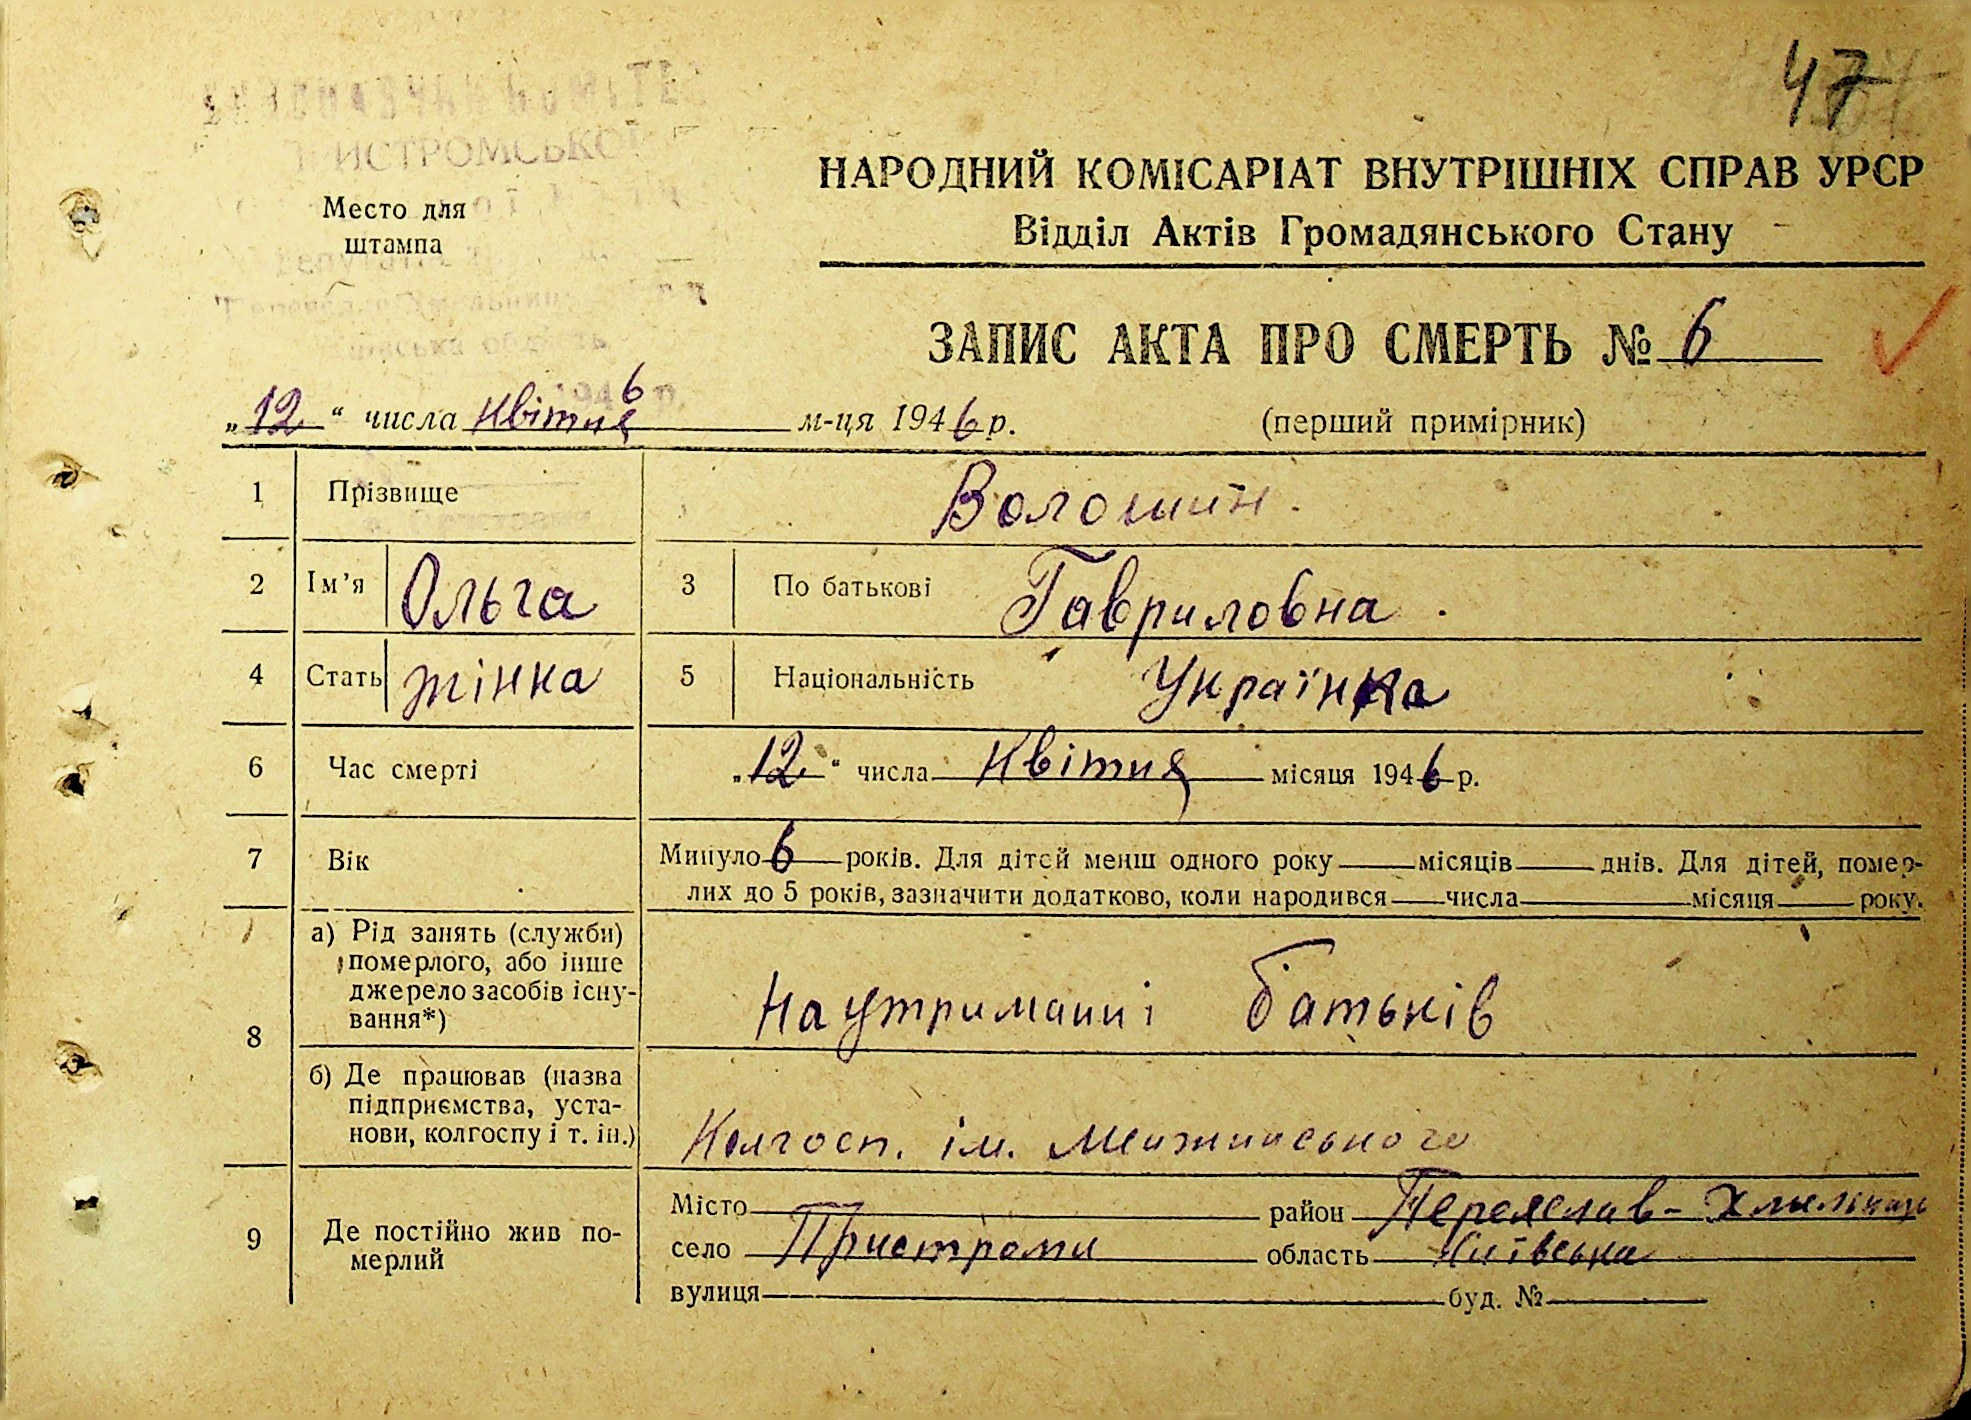 47
ПРИСТРОМСЬКОЇ
Место для
штампа
НАРОДНИЙ КОМІСАРІАТ ВНУТРІШНІХ СПРАВ УРСР
Відділ Актів Громадянського Стану
ЗАПИС АКТА ПРО СМЕРТЬ № 6
„12“ числа квітня 6 м-ця 1946 р.
(перший примірник)
1 Прізвище Волошин.
2 Ім’я Ольга 3 По батькові Гавриловна.
4 Стать жінка 5 Національність Українка
6 Час смерті „12“ числа квітня місяця 1946 р.
7 Вік Минуло 6 років. Для дітей менш одного року місяців днів. Для дітей, помер-
лих до 5 років, зазначити додатково, коли народився числа місяця року.
8 а) Рід занять (служби)
померлого, або інше
джерело засобів існу-
вання*)
На утриманні батьків
б) Де працював (назва
підприємства, уста-
нови, колгоспу і т. ін.)
Колгосп. ім. Менжинського
9 Де постійно жив по-
мерлий
Місто район Переяслав-Хмельниць
село Пристроми область Київська
вулиця буд. №